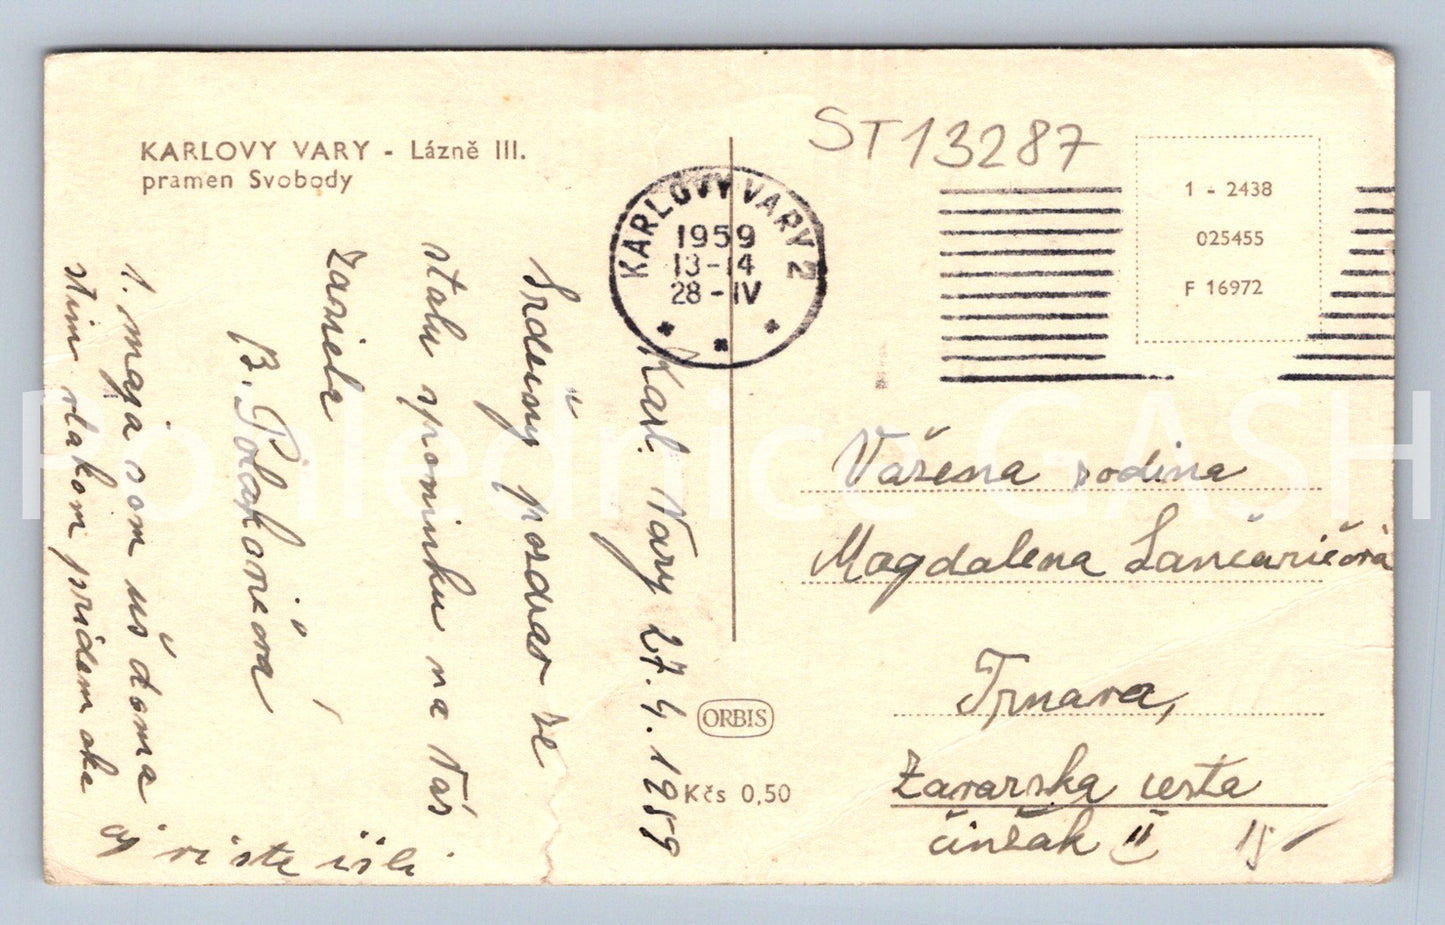 KARLOVY VARY - Lázně III.
pramen Svobody
ST13287
KARLOVY VARY 2
1959
13-14
28-IV
1 - 2438
025455
F 16972
Karl. Vary 27.4.1959
Srdečný pozdrav ze
stalu spomienku na Vás
zasiela
B. Polakovičová
1. maja som už doma
stim vlakom prídem aka
aj vi ste išli
Vážena rodina
Magdalena Lančaričová
Trnava,
Zavarska cesta
činžák II 15
ORBIS
Kčs 0,50
Pohlednice GASH